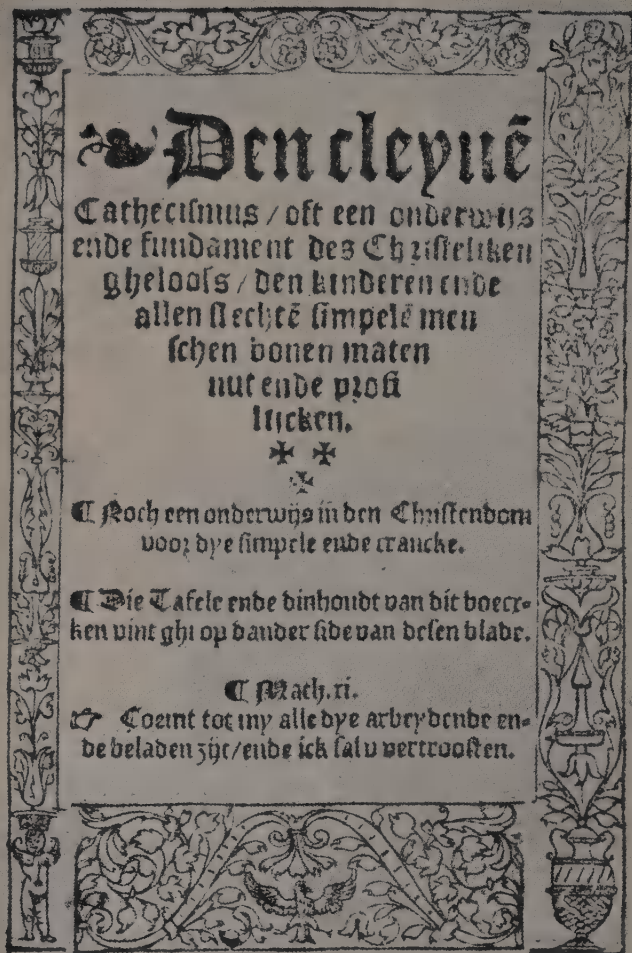 Den cleynē
Cathecismus / oft een onderwijs
ende fundament des Christeliken
gheloofs / den kinderen ende
allen slechtē simpelē men
schen bouen maten
nut ende profi
tlijcken.
¶ Noch een onderwijs in den Christendom
voor dye simpele ende crancke.
¶ Die Tafele ende dinhoudt van dit boecx-
ken vint ghi op dander side van desen blade.
¶ Math. xi.
☞ Coemt tot my alle dye arbeydende en-
de beladen zijt / ende ick sal v vertroosten.